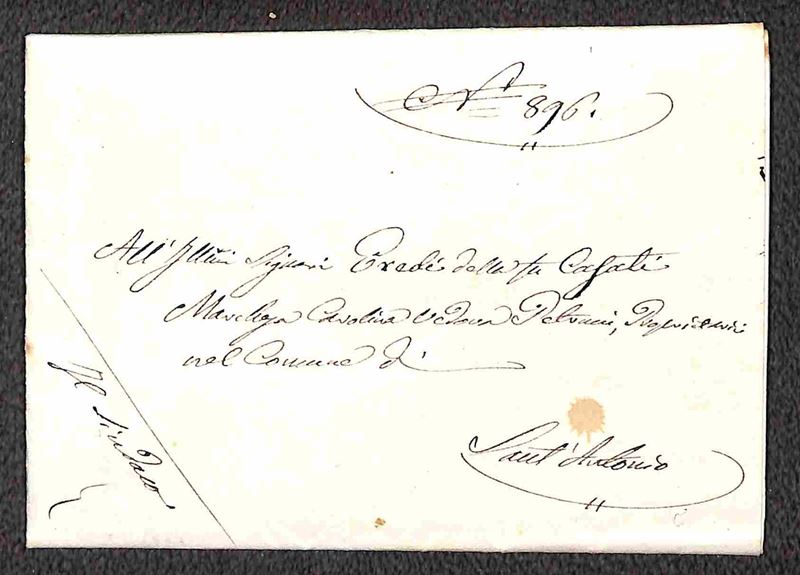 N.° 896.
All' Illmi Signori Eredi della fu Casati
Marchesa Carolina Vedova Petroni,
nel Comune di
Sant' Antonio
Il Sindaco